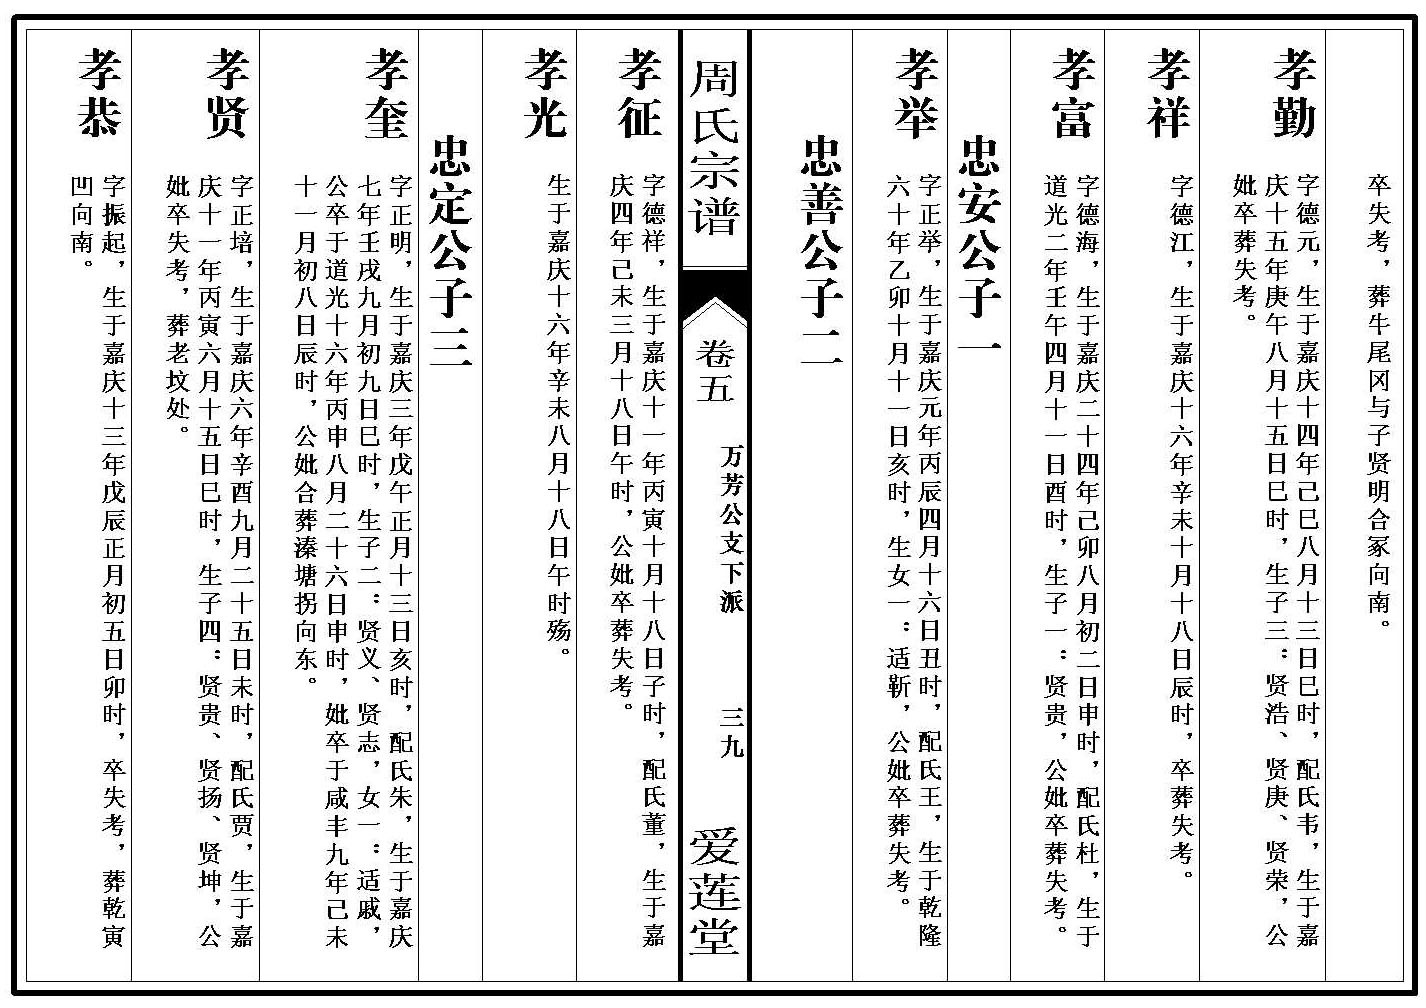 卒失考，葬牛尾冈与子贤明合冢向南。
孝勤
字德元，生于嘉庆十四年己巳八月十三日巳时，配氏韦，生于嘉
庆十五年庚午八月十五日巳时，生子三：贤浩、贤庚、贤荣，公
妣卒葬失考。
孝祥
字德江，生于嘉庆十六年辛未十月十八日辰时，卒葬失考。
孝富
字德海，生于嘉庆二十四年己卯八月初二日申时，配氏杜，生于
道光二年壬午四月十一日酉时，生子一：贤贵，公妣卒葬失考。
忠安公子一
孝举
字正举，生于嘉庆元年丙辰四月十六日丑时，配氏王，生于乾隆
六十年乙卯十月十一日亥时，生女一：适靳，公妣卒葬失考。
忠善公子二
周氏宗谱
卷五
万芳公支下派
三九
爱莲堂
孝征
字德祥，生于嘉庆十一年丙寅十月十八日子时，配氏董，生于嘉
庆四年己未三月十八日午时，公妣卒葬失考。
孝光
生于嘉庆十六年辛未八月十八日午时殇。
忠定公子三
孝奎
字正明，生于嘉庆三年戊午正月十三日亥时，配氏朱，生于嘉庆
七年壬戌九月初九日巳时，生子二：贤义、贤志，女一：适戚，
公卒于道光十六年丙申八月二十六日申时，妣卒于咸丰九年己未
十一月初八日辰时，公妣合葬溱塘拐向东。
孝贤
字正培，生于嘉庆六年辛酉九月二十五日未时，配氏贾，生于嘉
庆十一年丙寅六月十五日巳时，生子四：贤贵、贤扬、贤坤，公
妣卒失考，葬老坟处。
孝恭
字振起，生于嘉庆十三年戊辰正月初五日卯时，卒失考，葬乾寅
凹向南。